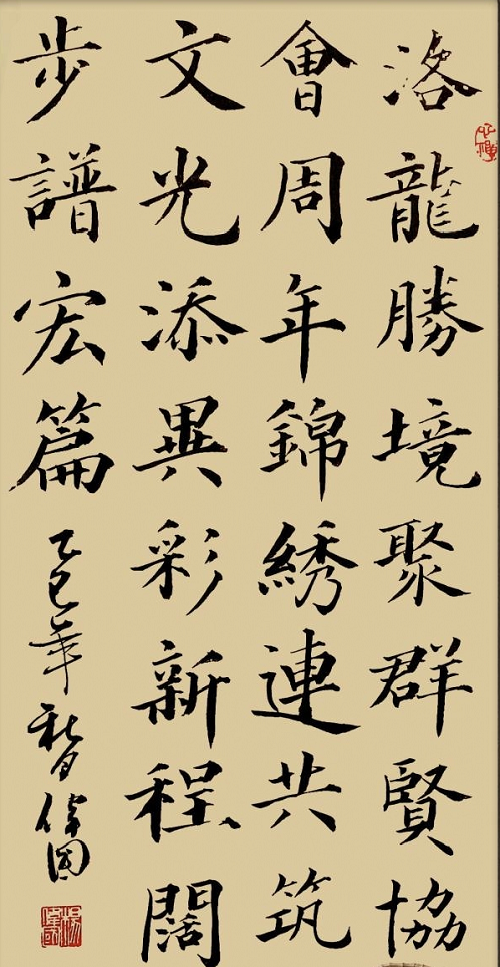 洛龍勝境聚群賢協
會周年錦綉連共筑
文光添異彩新程闊
步譜宏篇
乙巳年秋月